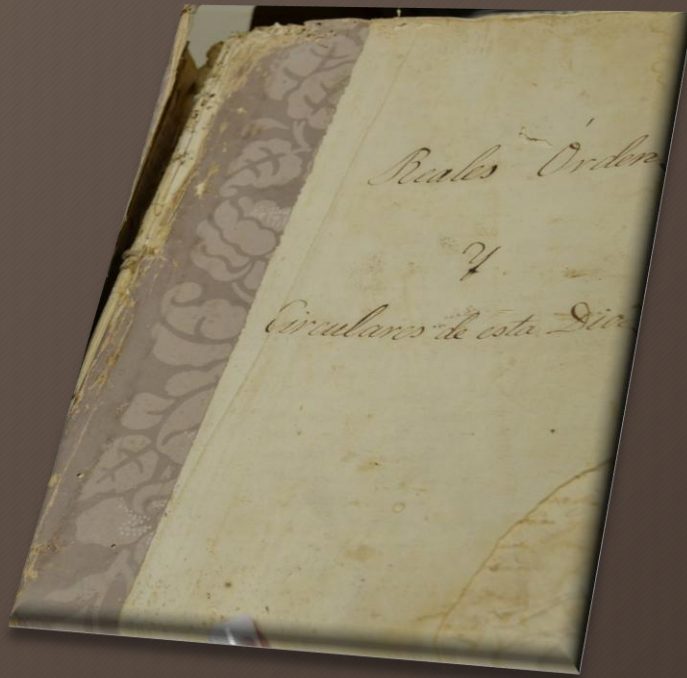 Reales Orden
Y
Circulares de esta Dioc